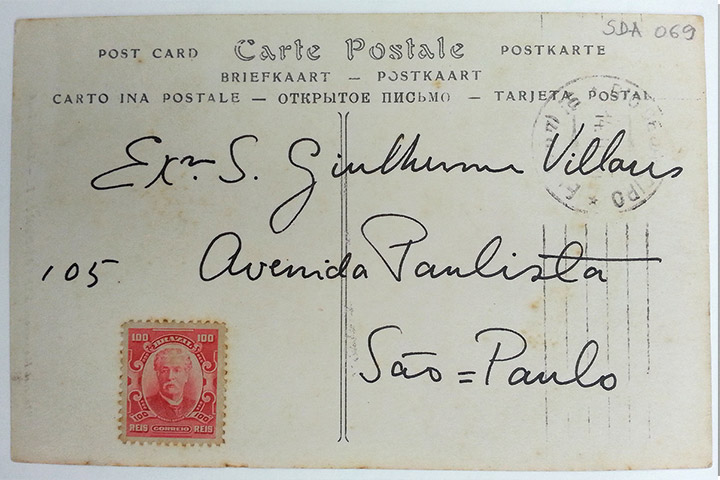 SDA 069
POST CARD Carte Postale POSTKARTE
BRIEFKAART — POSTKAART
CARTO INA POSTALE — ОТКРЫТОЕ ПИСЬМО — TARJETA POSTAL
Exmº S. Guilherme Villares
105 Avenida Paulista
São = Paulo
100 BRAZIL 100
100 100
REIS CORREIO REIS